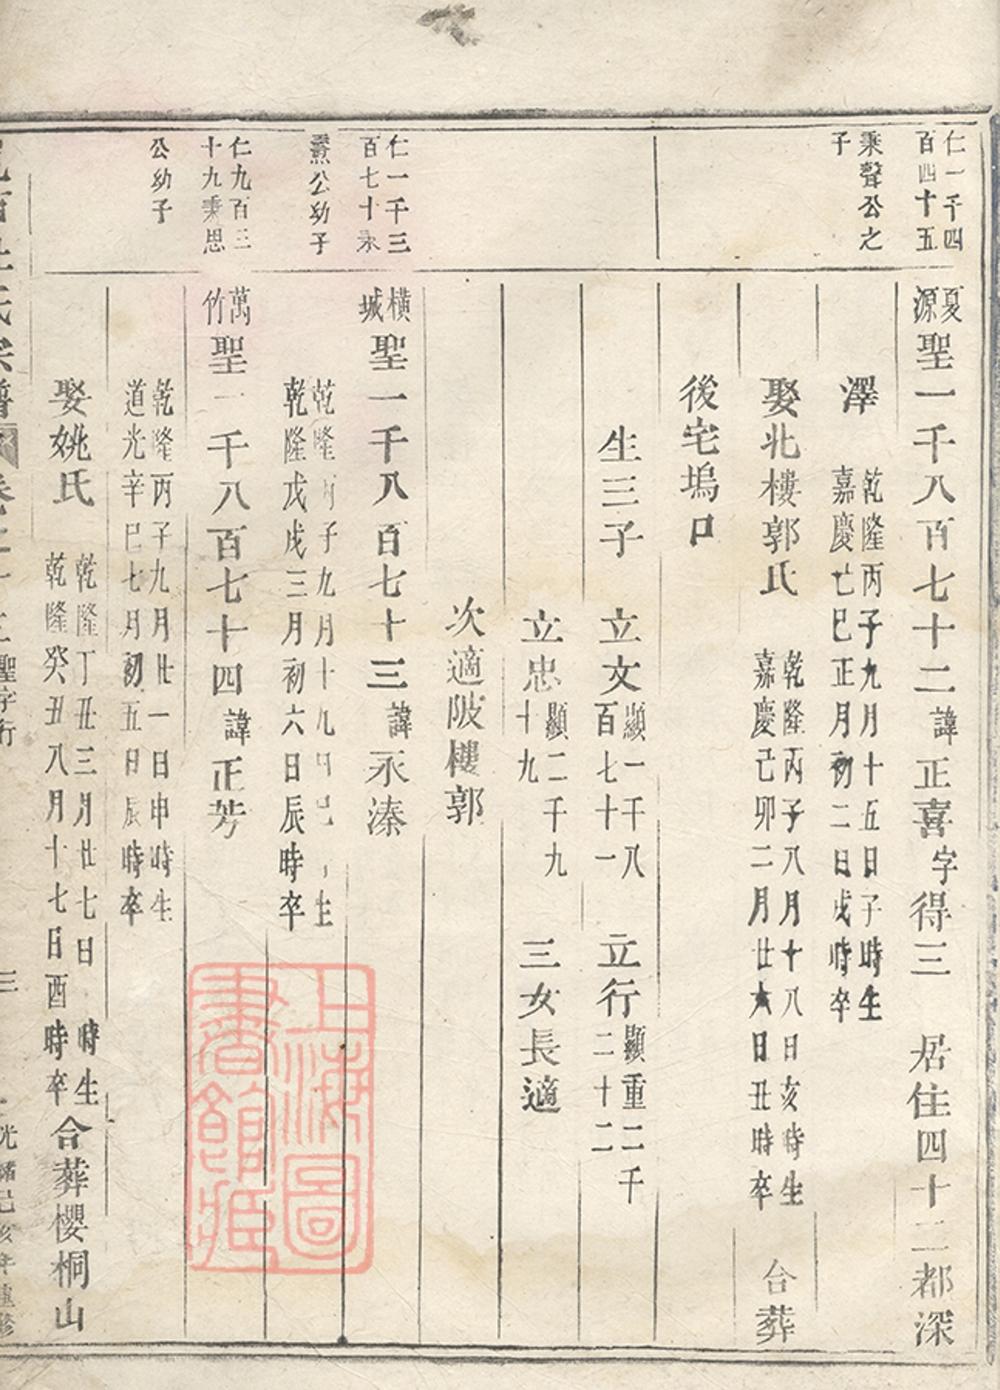 仁一千四
百四十五
秉聲公之
子
夏源聖一千八百七十二諱正喜字得三 居住四十二都深
澤 乾隆丙子九月十五日子時生
嘉慶乙巳正月初二日戌時卒
娶北樓郭氏 乾隆丙子八月十八日亥時生
嘉慶己卯二月廿六日丑時卒 合葬
後宅塢口
生三子 立文顯一千八百七十一 立行顯重二千二十二
立忠顯二千九十九 三女長適
次適陂樓郭
仁一千三
百七十永
公幼子
橫城聖一千八百七十三諱永溱
乾隆丙子九月十九日巳 生
乾隆戊戌三月初六日辰時卒
仁九百三
十九秉思
公幼子
萬竹聖一千八百七十四諱正芳
乾隆丙子九月廿一日申時生
道光辛巳七月初五日辰時卒
娶姚氏 乾隆丁丑三月廿七日 時生
乾隆癸丑八月十七日酉時卒 合葬櫻桐山
氏宗譜
聖字行
三
光緒己亥年
上海圖
書館藏